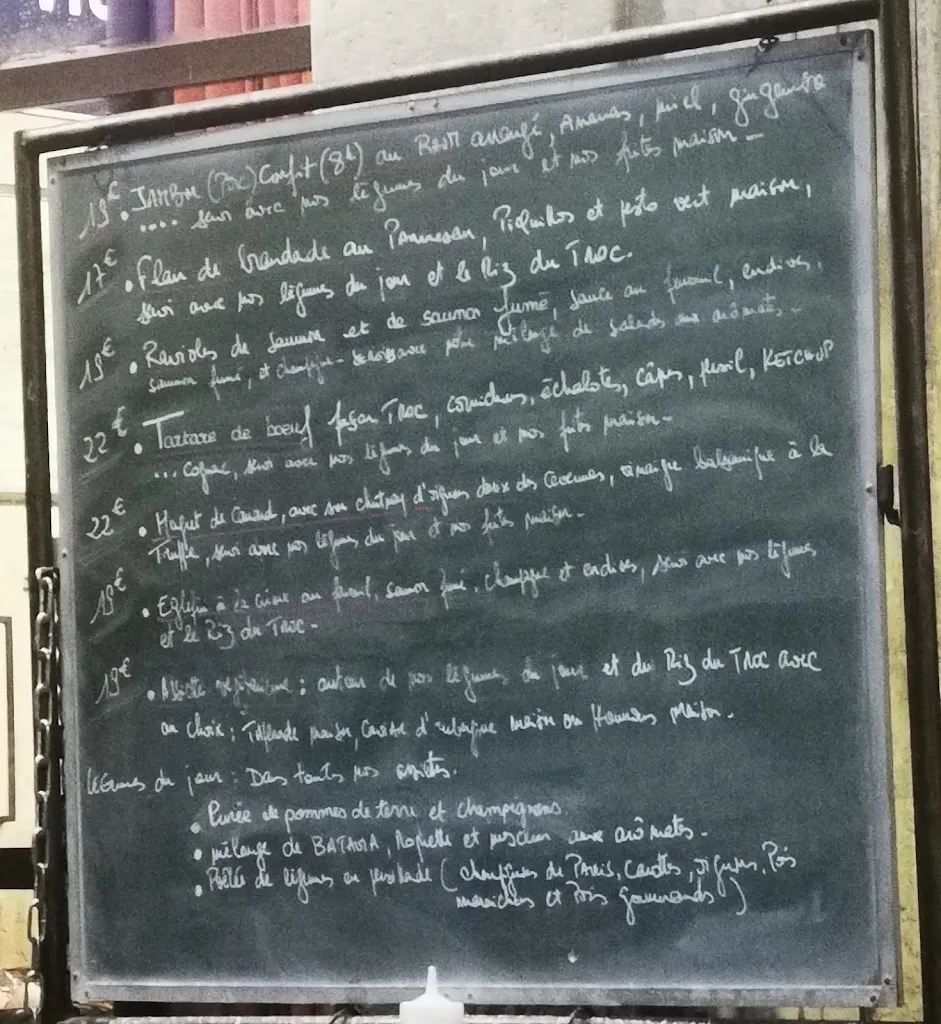 19€ • JAMBON (Porc) Confit (8h) au RHUM arrangé, Ananas, miel, gingembre
.... servi avec nos légumes du jour et nos frites maison -
17€ • Flan de brandade au Parmesan, Piquillos et pesto vert maison,
servi avec nos légumes du jour et le Riz du TROC.
19€ • Ravioles de saumon et de saumon fumé, sauce au fenouil, endives,
saumon fumé, et champignons mélange de salades aux arômates -
22€ • Tartare de boeuf façon TROC, cornichons, échalotes, câpres, persil, KETCHUP
... cognac, servi avec nos légumes du jour et nos frites maison -
22€ • Magret de Canard, avec son chutney d'oignons doux des Cévennes, vinaigre balsamique à la
Truffe, servi avec nos légumes du jour et nos frites maison -
19€ • Eglefin à la crème au fenouil, saumon fumé, champignons et endives, servi avec nos légumes
et le Riz du TROC -
19€ • Assiette végétarienne : autour de nos légumes du jour et du Riz du TROC avec
au choix : Tapenade maison, Caviar d'aubergine maison ou Houmous Maison -
Légumes du jour : Dans toutes nos assiettes.
• Purée de pommes de terre et champignons.
• mélange de BATAVIA, Roquette et mesclun aux arômates -
• Poêlée de légumes en persillade (champignons de PARIS, Carottes, oignons, Pois
maraichers et Pois gourmands)